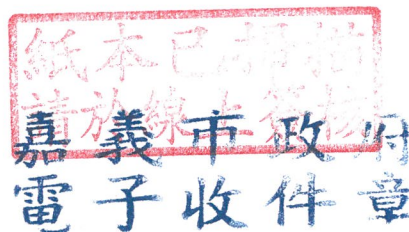 紙本已掃描
請放線上簽核
嘉義市政府
電子收件章